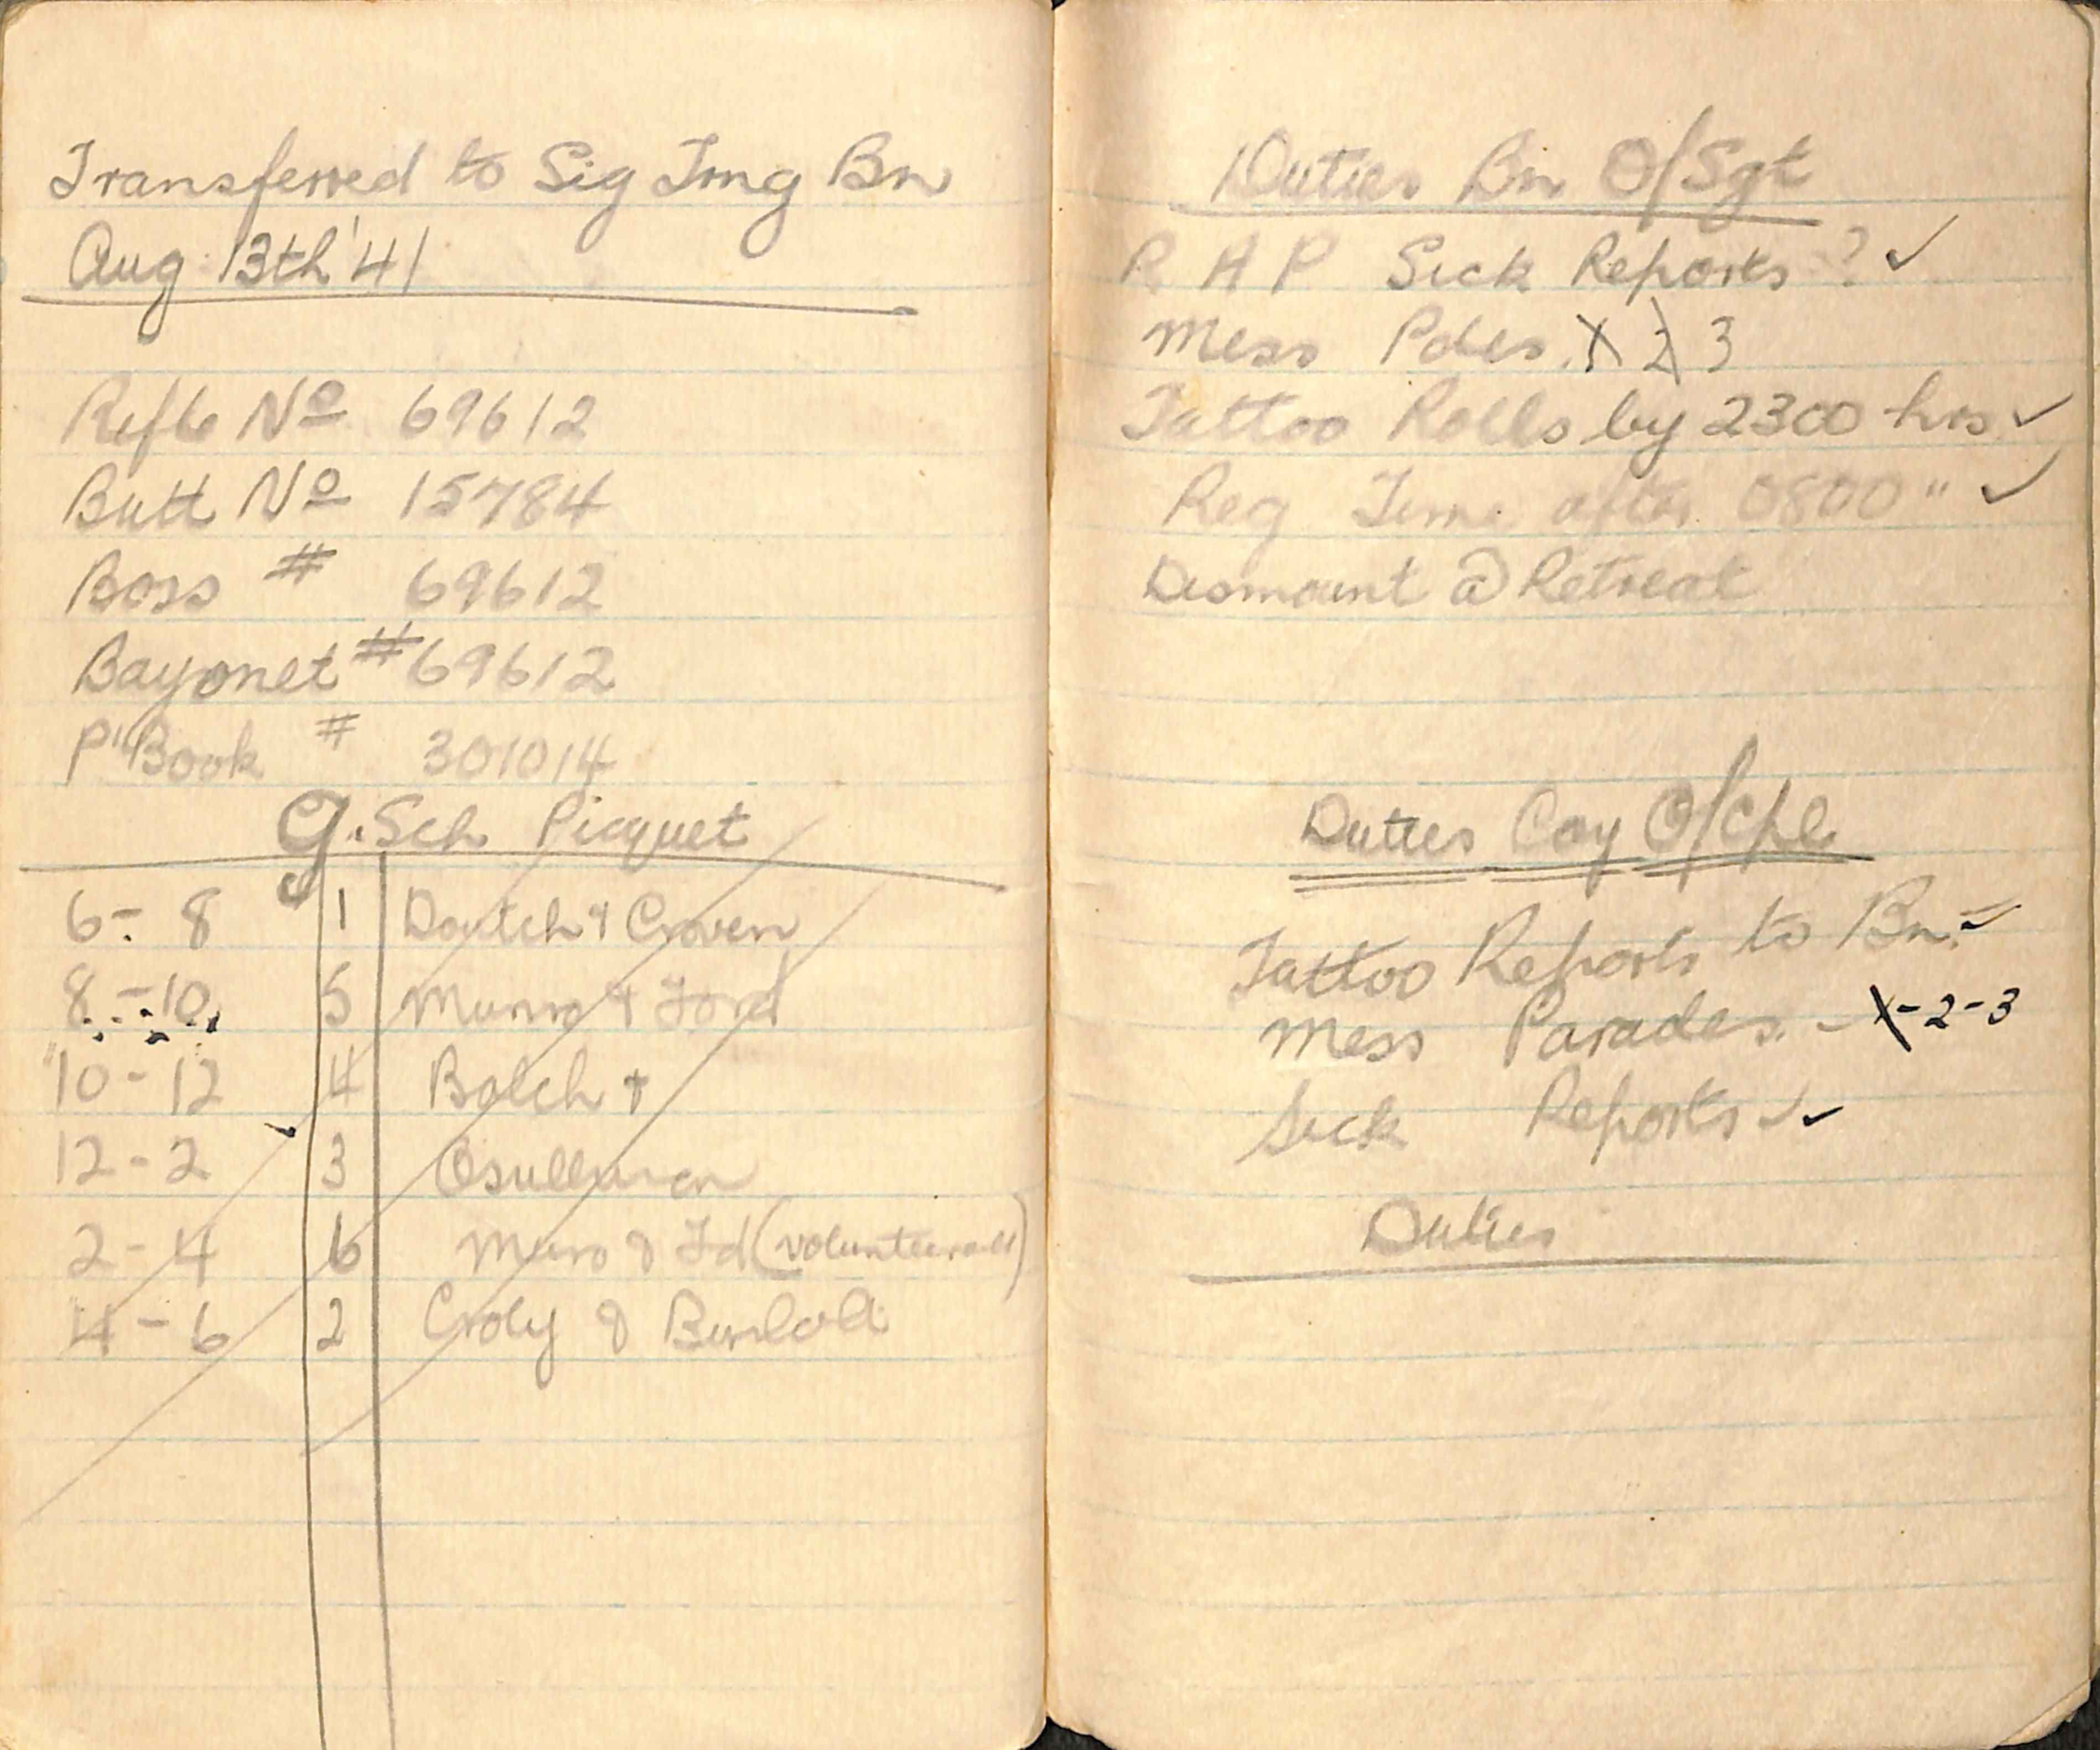 Transferred to Sig Trng Bn
Aug 13th '41
Rifle Nº 69612
Butt Nº 15784
Boss # 69612
Bayonet # 69612
P"Book # 301014
G. Sch Picquet
6 - 8 1 Doutch & Craven
8 - 10 5 Munro & Ford
10 - 12 4 Balch +
12 - 2 3 Osullivan
2 - 4 6 Munro & Fd (volunteered)
4 - 6 2 Croly &
Duties Bn O/Sgt
R A P Sick Reports ? ✓
Mess Pdes. 1 2 3
Tattoo Rolls by 2300 hrs ✓
Reg Time after 0800 " ✓
Dismount @ Retreat
Duties Coy O/Cpl.
Tattoo Reports to Bn. ✓
Mess Parades. - 1 - 2 - 3
Sick Reports ✓ ✓
Duties